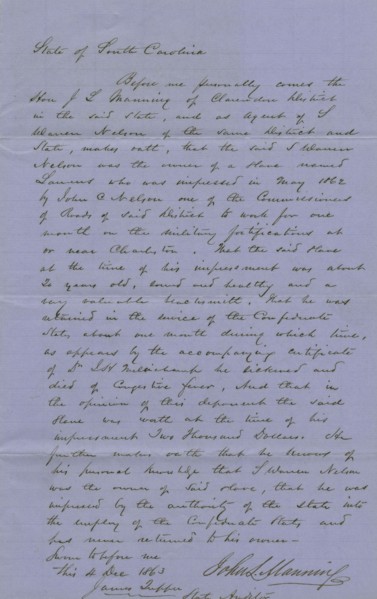 State of South Carolina
Before me personally comes the
Hon J L Manning of Clarendon District
in the said State, and as Agent of S
Warren Nelson of the same District and
State, makes oath, that the said S Warren
Nelson was the owner of a Slave named
who was impressed in May 1862
by John C Nelson one of the Commissioners
of Roads of said District to work for one
month on the military fortifications at
or near Charleston. That the said Slave
at the time of his impressment was about
20 years old, sound and healthy and a
very valuable blacksmith. That he was
retained in the service of the Confederate
States about one month during which time,
as appears by the accompanying certificate
of Dr he sickened and
died of Congestive fever, And that in
the opinion of this deponent the said
Slave was worth at the time of his
impressment Two Thousand Dollars. He
further makes oath that he knows of
his personal knowledge that S Warren Nelson
was the owner of said slave, that he was
impressed by the authority of the State into
the employ of the Confederate States and
has never returned to his owner—
Sworn to before me
this 4 Dec 1863
John L Manning
James Tupper
State Auditor